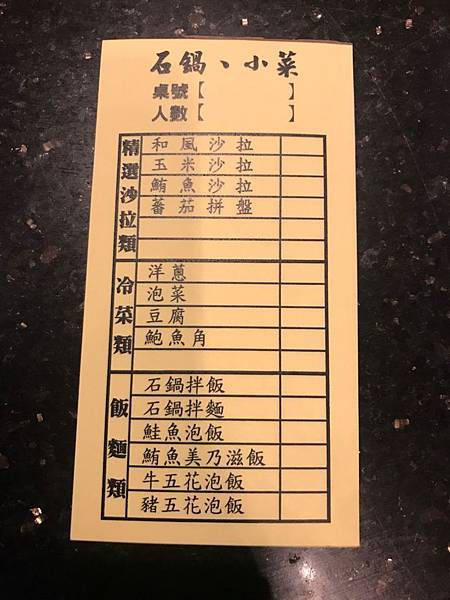 石鍋、小菜
桌號【 】
人數【 】
精選沙拉類
和風沙拉
玉米沙拉
鮪魚沙拉
蕃茄拼盤
冷菜類
洋蔥
泡菜
豆腐
鮑魚角
飯麵類
石鍋拌飯
石鍋拌麵
鮭魚泡飯
鮪魚美乃滋飯
牛五花泡飯
豬五花泡飯